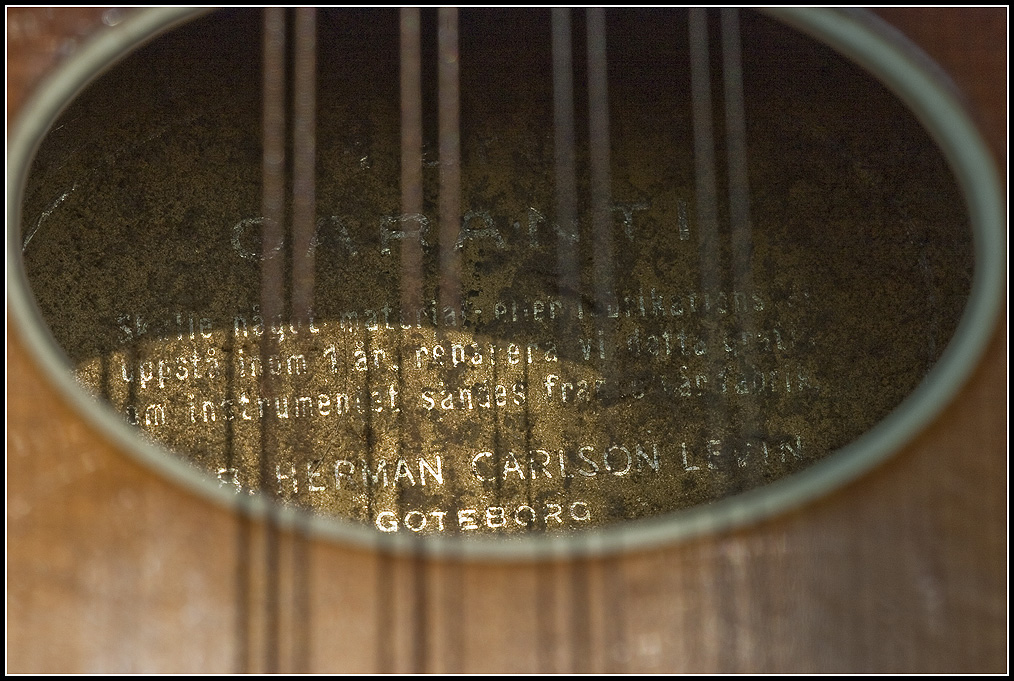 GARANTI
Skulle något material- eller fabrikationsfel
uppstå inom 1 år, reparera vi detta gratis
om instrumentet sändes frakt vår fabrik.
HERMAN CARLSON LEVIN
GÖTEBORG